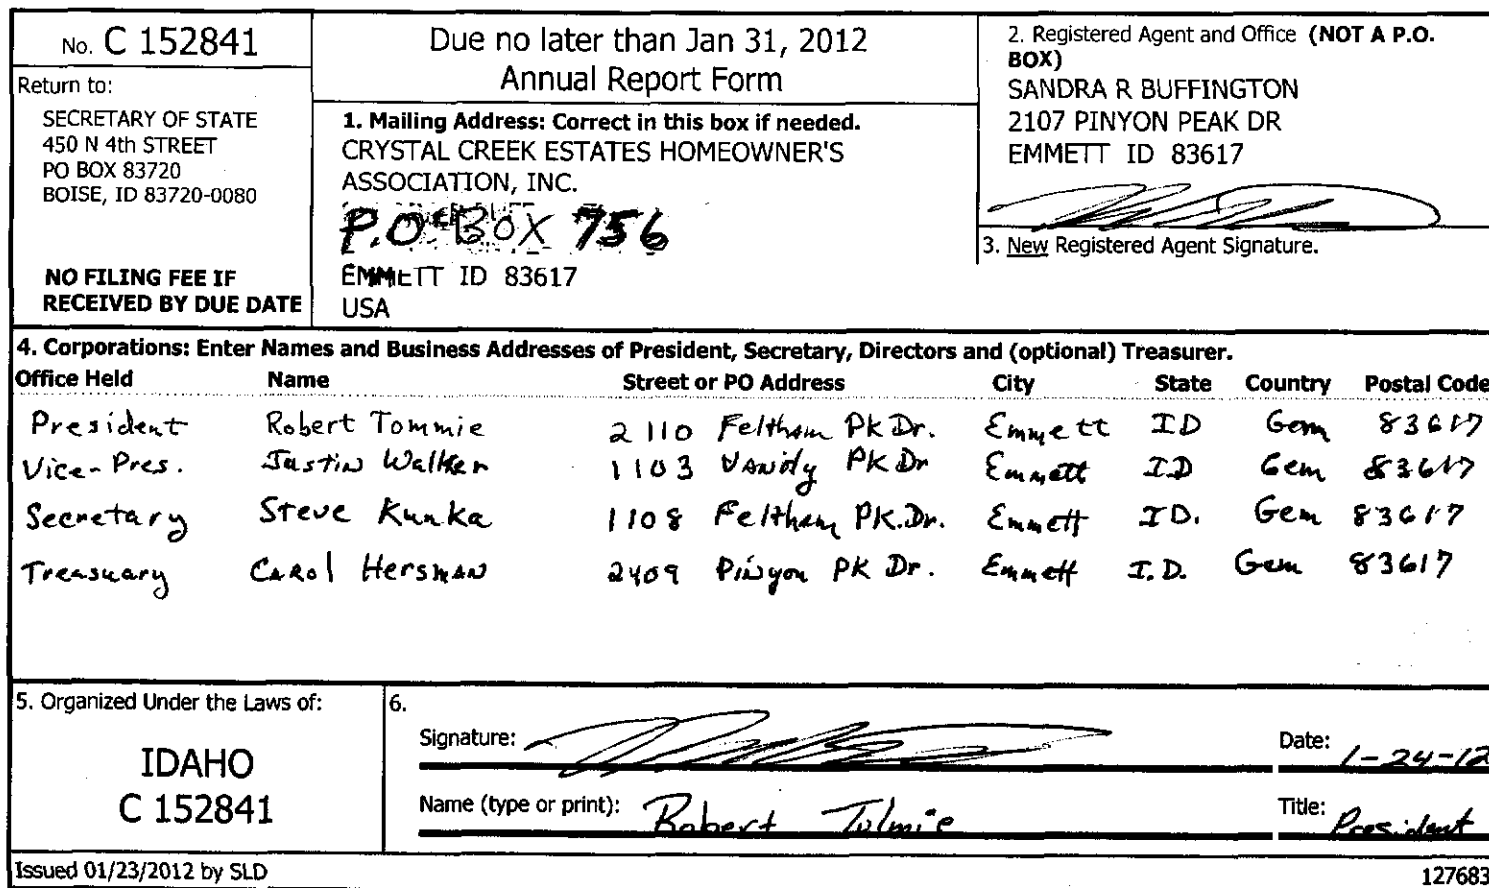 No. C 152841
Return to:
SECRETARY OF STATE
450 N 4th STREET
PO BOX 83720
BOISE, ID 83720-0080
NO FILING FEE IF
RECEIVED BY DUE DATE
Due no later than Jan 31, 2012
Annual Report Form
1. Mailing Address: Correct in this box if needed.
CRYSTAL CREEK ESTATES HOMEOWNER'S
ASSOCIATION, INC.
P.O. BOX 756
EMMETT ID 83617
USA
2. Registered Agent and Office (NOT A P.O.
BOX)
SANDRA R BUFFINGTON
2107 PINYON PEAK DR
EMMETT ID 83617
3. New Registered Agent Signature.
4. Corporations: Enter Names and Business Addresses of President, Secretary, Directors and (optional) Treasurer.
Office Held Name Street or PO Address City State Country Postal Code
President Robert Tommie 2110 Feltham PK Dr. Emmett ID Gem 83617
Vice-Pres. Justin Walker 1103 PK Dr Emmett ID Gem 83617
Secretary Steve Kunka 1108 Feltham PK. Dr. Emmett ID. Gem 83617
Treasuary Carol Hersman 2409 Pinyon PK Dr. Emmett I.D. Gem 83617
5. Organized Under the Laws of:
IDAHO
C 152841
6.
Signature:
Date: 1-24-12
Name (type or print): Robert Tolmie
Title: President
Issued 01/23/2012 by SLD
127683